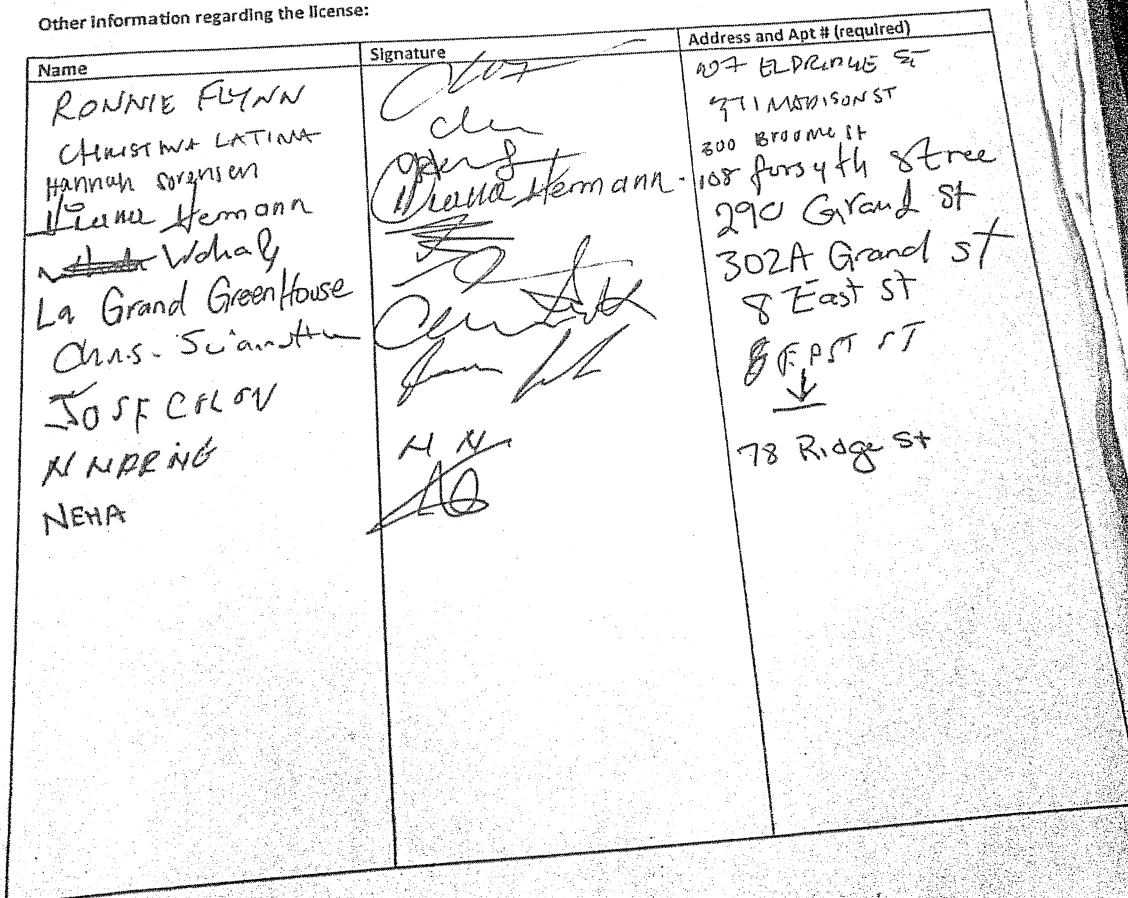 Other information regarding the license:
Name Signature Address and Apt # (required)
RONNIE FLYNN ELDRIDGE ST
CHRISTINA LATINA 371 MADISON ST
Hannah Sorensen 300 BROOME St
Diana Hemann Diana Hemann 108 forsyth Stree
Wohab 290 Grand St
La Grand GreenHouse 302A Grand st
Chris. 8 East St
JOSE COLON 8 EAST ST
N N N N ↓
NEHA 78 Ridge St